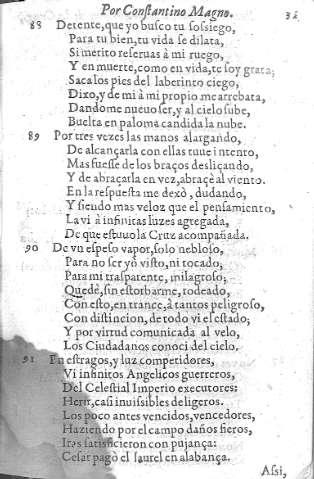 Por Constantino Magno. 32
88 Detente, que yo busco tu sossiego,
Para tu bien, tu vida se dilata,
Si merito reseruas à mi ruego,
Y en muerte, como en vida, te soy grata;
Saca los pies del laberinto ciego,
Dixo, y de mi à mi propio me arrebata,
Dandome nueuo ser, y al cielo sube,
Buelta en paloma candida la nube.
89 Por tres vezes las manos alargando,
De alcançarla con ellas tuue intento,
Mas fuesse de los braços deslizando,
Y de abraçarla en vez, abraçè al viento.
En la respuesta me dexò, dudando,
Y siendo mas veloz que el pensamiento,
La vi à infinitas luzes agregada,
De que estuuo la Cruz acompañada.
90 De vn espeso vapor, solo nebloso,
Para no ser yo visto, ni tocado,
Para mi trasparente, milagroso;
Quedè, sin estorbarme, rodeado,
Con esto, en trance, à tantos peligroso,
Con distincion, de todo vi el estado;
Y por virtud comunicada al velo,
Los Ciudadanos conoci del cielo.
91 En estragos, y luz competidores,
Vi infinitos Angelicos guerreros,
Del Celestial Imperio executores:
Herir, casi inuisibles de ligeros.
Los poco antes vencidos, vencedores,
Haziendo por el campo daños fieros,
Iras satisficieron con pujança:
Cesar pagò el laurel en alabança.
Assi,